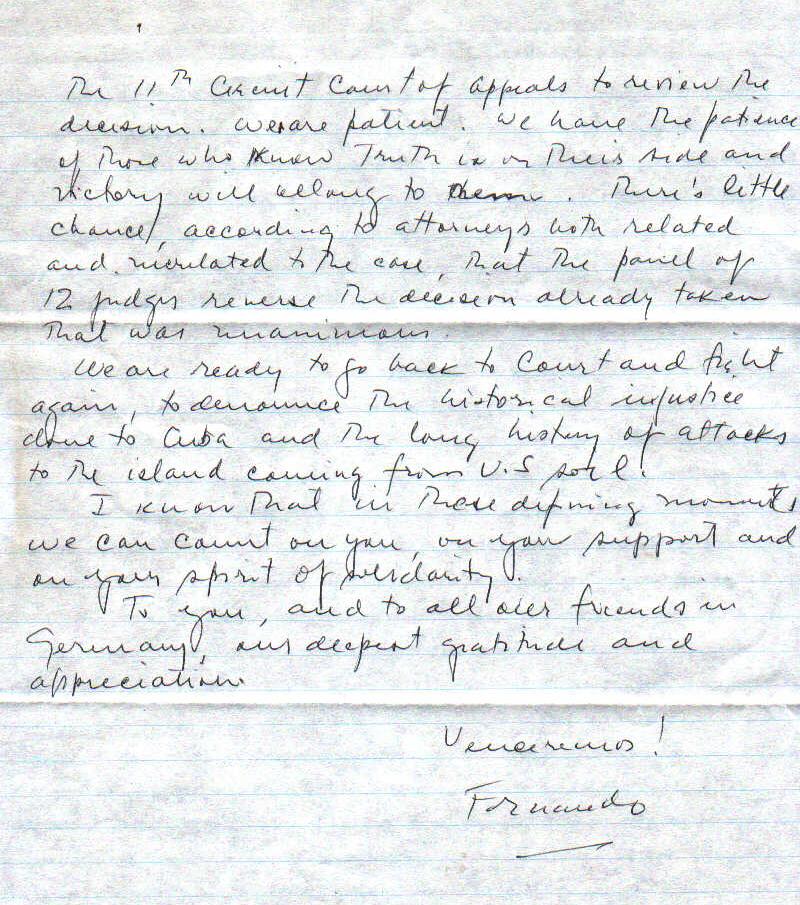 The 11th Circuit Court of Appeals to review the
decision. We are patient. We have the patience
of those who know Truth is on their side and
victory will belong to them. There's little
chance, according to attorneys both related
and unrelated to the case, that the panel of
12 judges reverse the decision already taken
that was unanimous.
We are ready to go back to Court and fight
again, to denounce the historical injustice
done to Cuba and the long history of attacks
to the island coming from U.S soil.
I know that in these defining moments
we can count on you, on your support and
on your spirit of solidarity.
To you, and to all our friends in
Germany, our deepest gratitude and
appreciation.
Venceremos!
Fernando